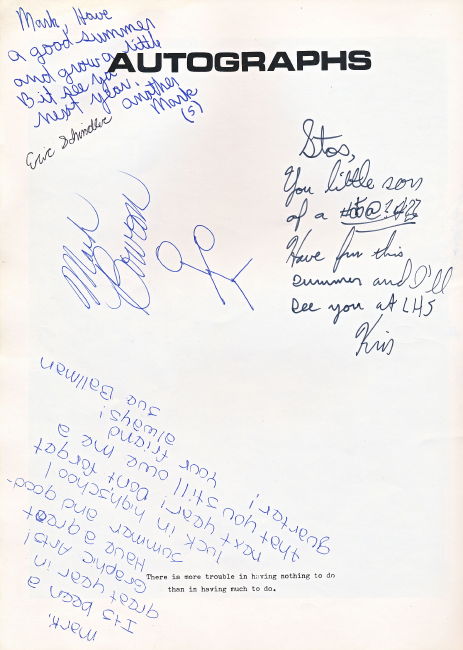 AUTOGRAPHS
Mark, Have
a good summer
and grow a little
Bit see ya
next year.
another
Mark
(S)
Eric Schindler
Mark
Stos,
You little son
of a #$@?!#??
Have fun this
summer and I'll
see you at LHS
Kris
Mark,
Its been a
great year in
Graphic Arts!
Have a great
summer and good-
luck in highschool
next year! Dont forget
that you still owe me a
quarter!
Your friend
always!
Sue Ballman
There is more trouble in having nothing to do
than in having much to do.